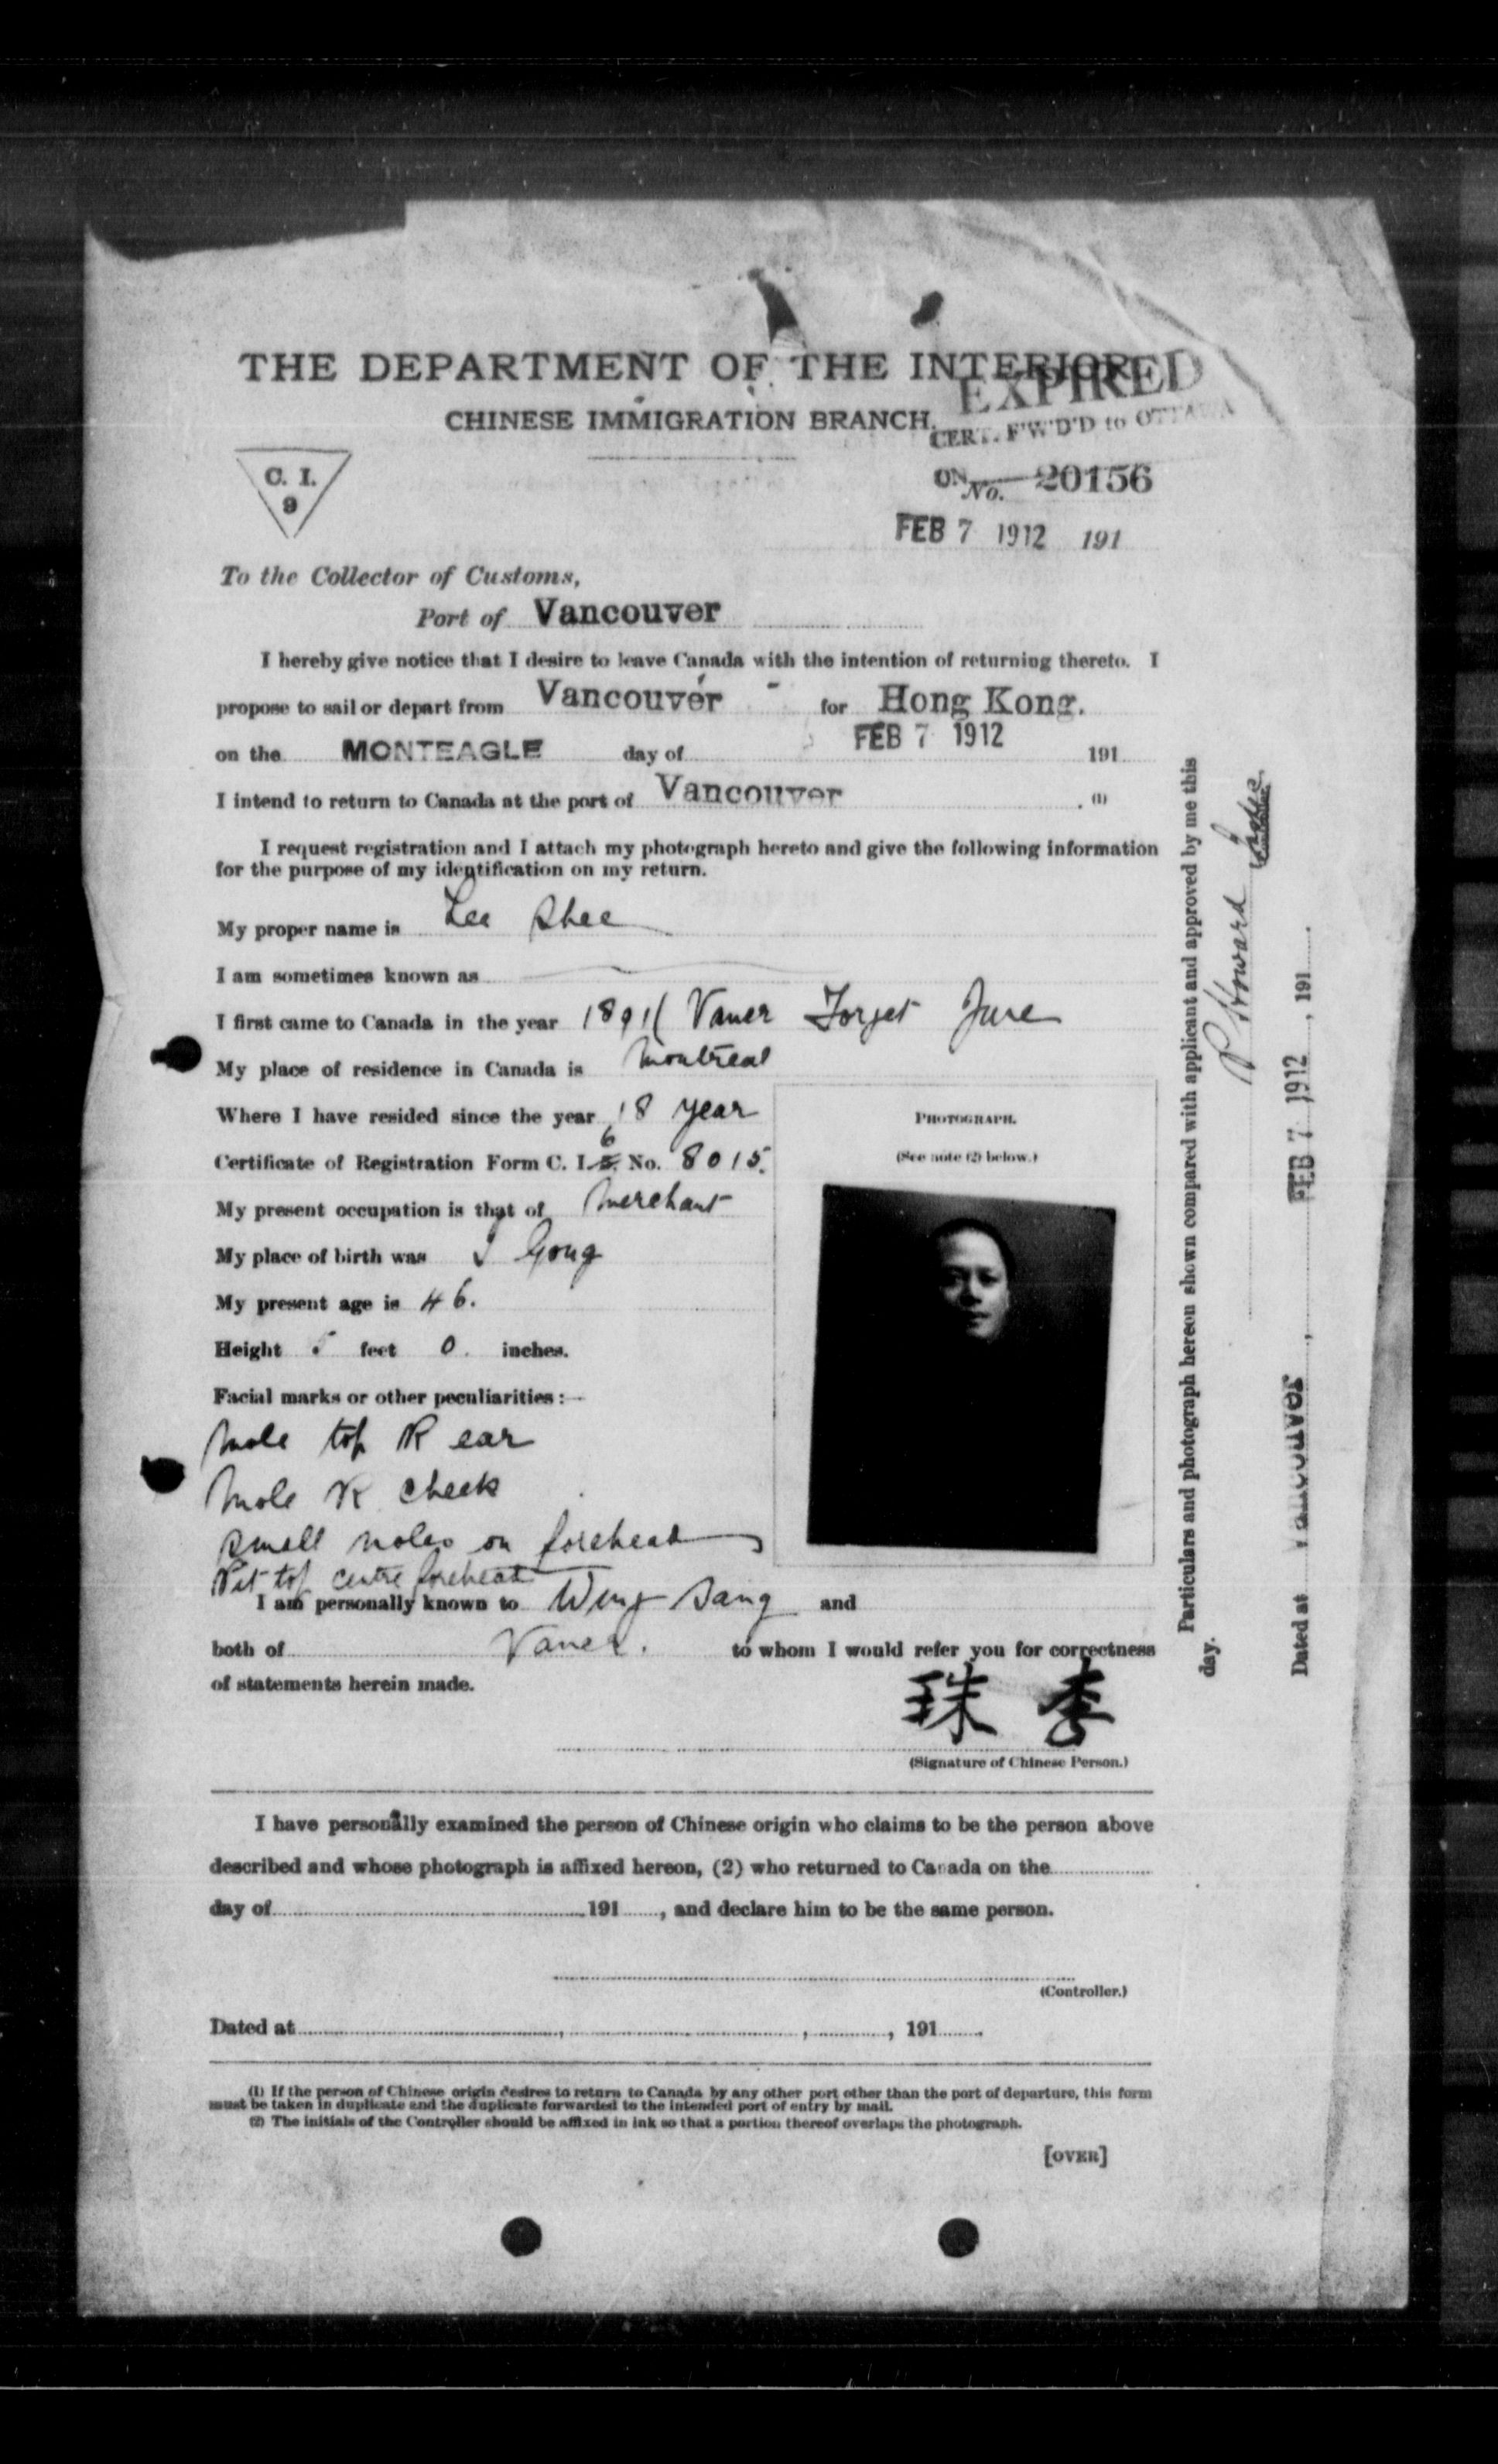 THE DEPARTMENT OF THE INTERIOR
EXPIRED
CHINESE IMMIGRATION BRANCH.
CERT. F'W'D'D to OTTAWA
C. I.
9
ON No. 20156
FEB 7 1912 191
To the Collector of Customs,
Port of Vancouver
I hereby give notice that I desire to leave Canada with the intention of returning thereto. I
propose to sail or depart from Vancouver for Hong Kong.
on the MONTEAGLE day of FEB 7 1912 191
I intend to return to Canada at the port of Vancouver . (1)
I request registration and I attach my photograph hereto and give the following information
for the purpose of my identification on my return.
My proper name is Lee Shee
I am sometimes known as
I first came to Canada in the year 1891( Vancr Forget June
My place of residence in Canada is Montreal
Where I have resided since the year 18 year
Certificate of Registration Form C. I. 5. 6 No. 8015.
My present occupation is that of Merchant
My place of birth was S Gong
My present age is 46.
Height 5 feet 0. inches.
Facial marks or other peculiarities:—
Mole top R ear
Mole R cheek
small moles on forehead
Pit top centre forehead
PHOTOGRAPH.
(See note (2) below.)
I am personally known to Wing Sang and
both of Vancr. to whom I would refer you for correctness
of statements herein made.
珠 李
(Signature of Chinese Person.)
I have personally examined the person of Chinese origin who claims to be the person above
described and whose photograph is affixed hereon, (2) who returned to Canada on the
day of 191 , and declare him to be the same person.
(Controller.)
Dated at , , , 191 .
(1) If the person of Chinese origin desires to return to Canada by any other port other than the port of departure, this form
must be taken in duplicate and the duplicate forwarded to the intended port of entry by mail.
(2) The initials of the Controller should be affixed in ink so that a portion thereof overlaps the photograph.
[OVER]
Particulars and photograph hereon shown compared with applicant and approved by me this
day.
P Howard
Dated at Vancouver , FEB 7 1912 , 191 .